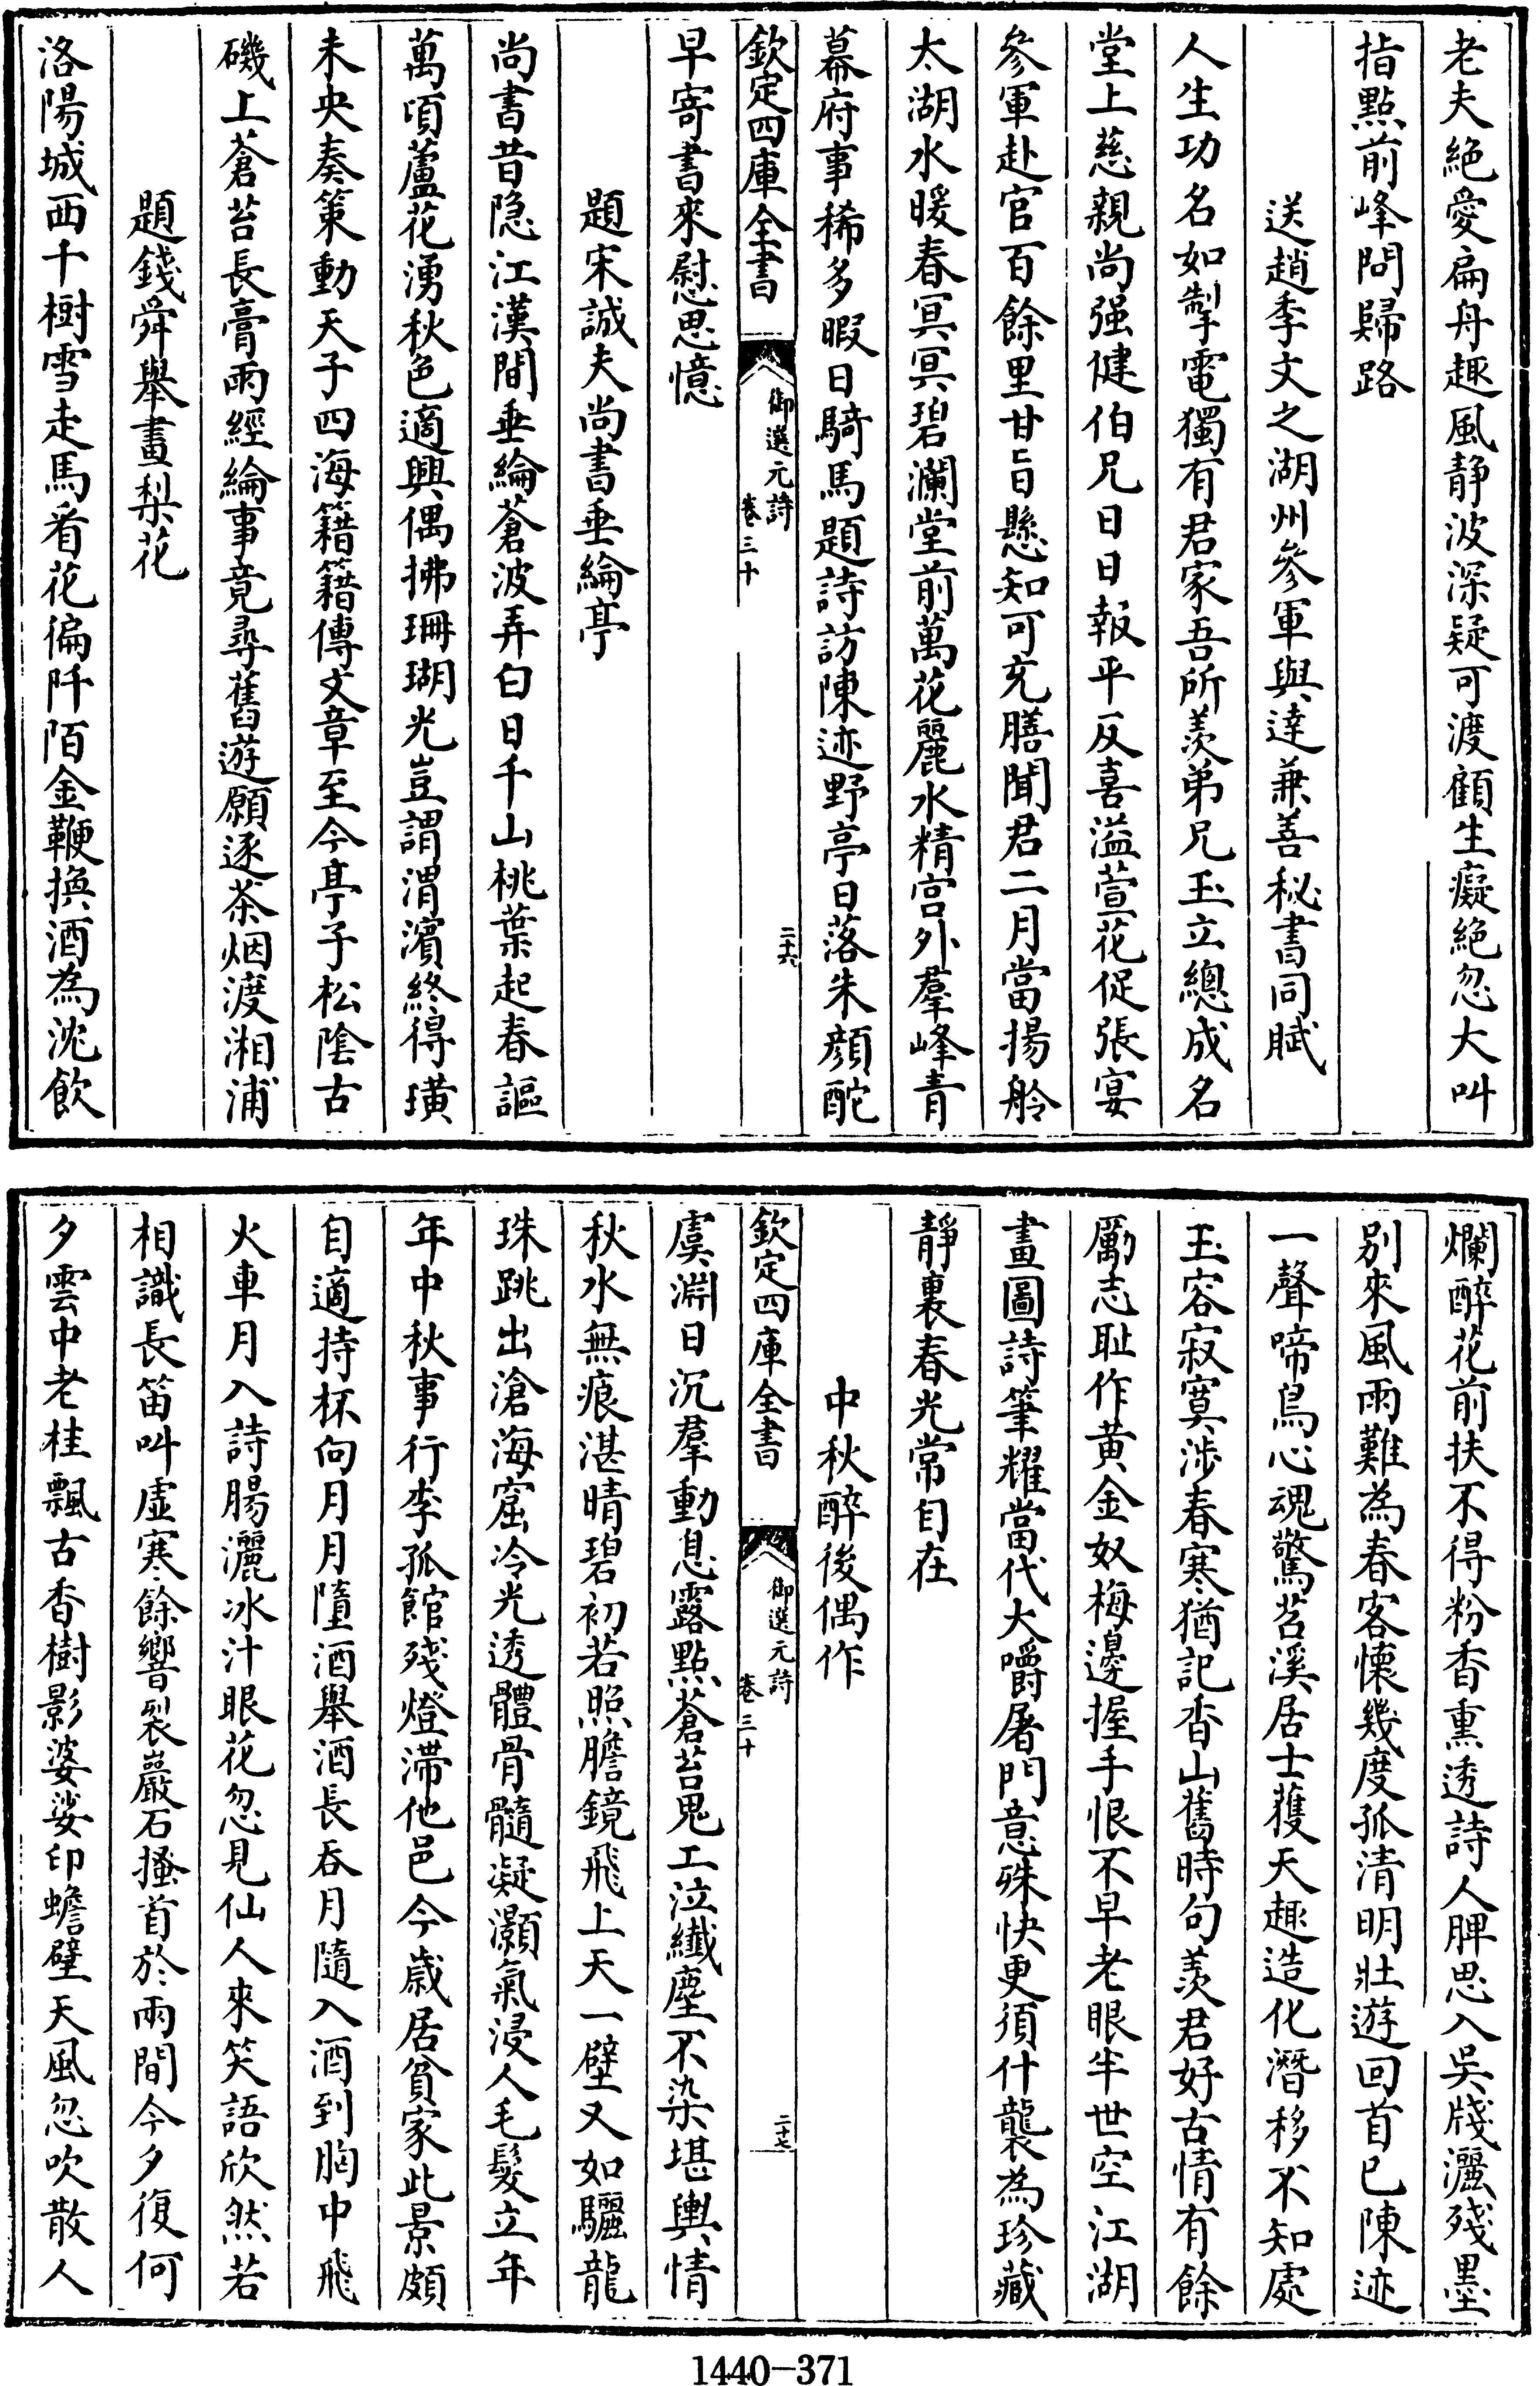 老夫絶愛扁舟趣風静波深疑可渡顧生癡絶忽大叫
指點前峰問歸路
送趙季文之湖州參軍與達兼善秘書同賦
人生功名如掣電獨有君家吾所羡弟兄玉立總成名
堂上慈親尚强健伯兄日日報平反喜溢萱花促張宴
參軍赴官百餘里甘旨懸知可充膳聞君二月當揚舲
太湖水暖春冥冥碧瀾堂前萬花麗水精宫外羣峰青
幕府事稀多暇日騎馬題詩訪陳迹野亭日落朱顔酡
欽定四庫全書
御選元詩
卷三十
二十六
早寄書來慰思憶
題宋誠夫尚書垂綸亭
尚書昔隐江漢間垂綸蒼波弄白日千山桃葉起春謳
萬頃蘆花湧秋色適興偶拂珊瑚光豈謂渭濱終得璜
未央奏策動天子四海籍籍傳文章至今亭子松陰古
磯上蒼苔長膏雨經綸事竟尋舊遊願逐茶烟渡湘浦
題錢舜舉畫梨花
洛陽城西千樹雪走馬看花徧阡陌金鞭換酒為沈飲
爛醉花前扶不得粉香熏透詩人脾思入吳牋灑殘墨
别來風雨難為春客懷幾度孤清明壯遊回首已陳迹
一聲啼鳥心魂驚苕溪居士獲天趣造化潛移不知處
玉容寂寞涉春寒猶記香山舊時句羡君好古情有餘
勵志耻作黄金奴梅邊握手恨不早老眼半世空江湖
畫圖詩筆耀當代大嚼屠門意殊快更須什襲為珍藏
靜裏春光常自在
中秋醉後偶作
欽定四庫全書
御選元詩
卷三十
二十七
虞淵日沉羣動息露點蒼苔鬼工泣纎塵不染堪輿情
秋水無痕湛晴碧初若照膽鏡飛上天一壁又如驪龍
珠跳出滄海窟冷光透體骨髓凝灝氣浸人毛髮立年
年中秋事行李孤館殘燈滯他邑今歲居貧家此景頗
自適持杯向月月墮酒舉酒長吞月隨入酒到胸中飛
火車月入詩腸灑冰汁眼花忽見仙人來笑語欣然若
相識長笛叫虚寒餘響裂巖石搔首於雨間今夕復何
夕雲中老桂飄古香樹影婆娑印蟾壁天風忽吹散人
1440-371